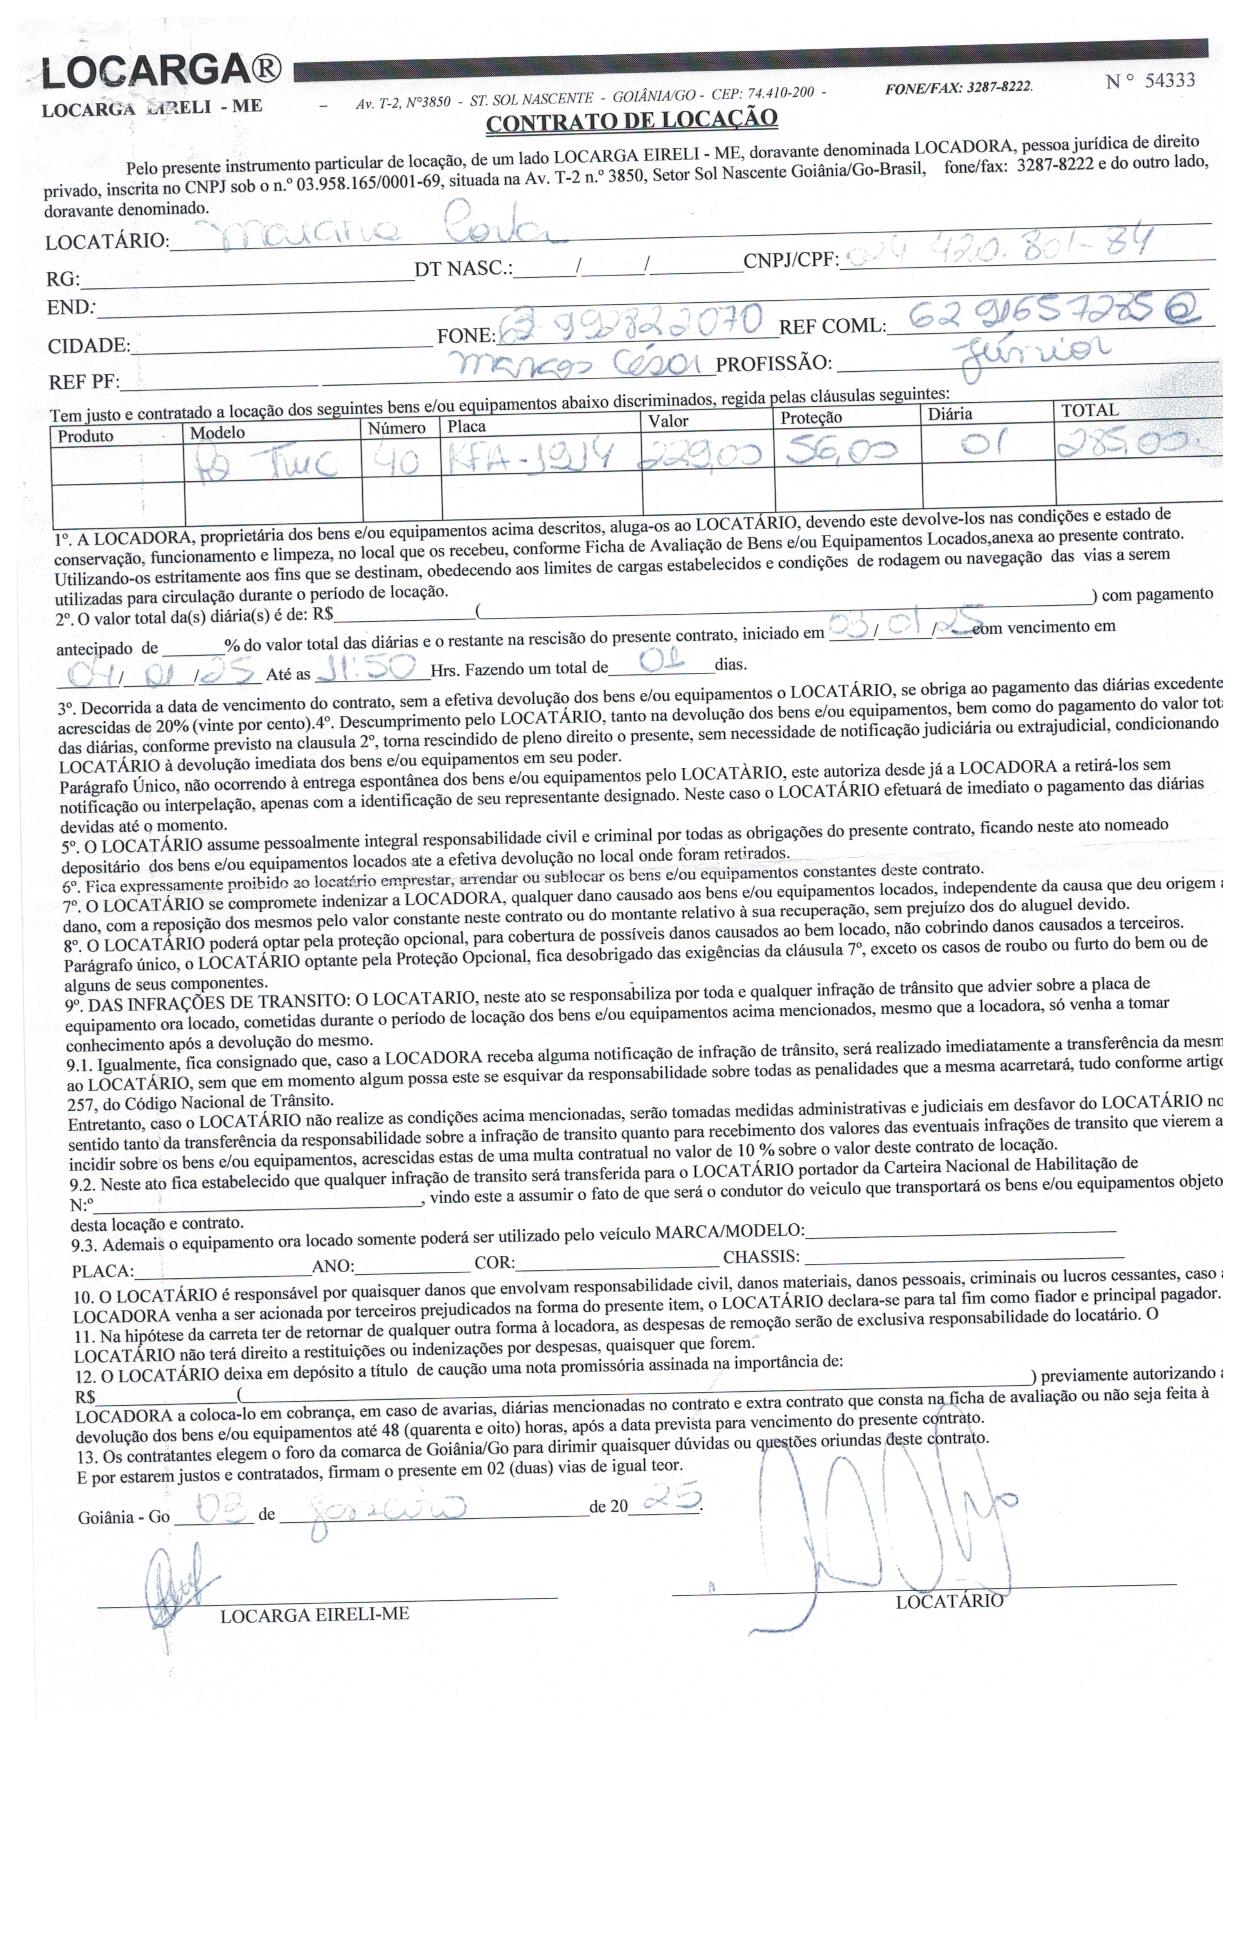 LOCARGA®
LOCARGA EIRELI - ME – Av. T-2, N°3850 - ST. SOL NASCENTE - GOIÂNIA/GO - CEP: 74.410-200 - FONE/FAX: 3287-8222. N° 54333
CONTRATO DE LOCAÇÃO
Pelo presente instrumento particular de locação, de um lado LOCARGA EIRELI - ME, doravante denominada LOCADORA, pessoa jurídica de direito
privado, inscrita no CNPJ sob o n.º 03.958.165/0001-69, situada na Av. T-2 n.º 3850, Setor Sol Nascente Goiânia/Go-Brasil, fone/fax: 3287-8222 e do outro lado,
doravante denominado.
LOCATÁRIO: Costa
RG: DT NASC.: / / CNPJ/CPF: 024 420.801-84
END:
CIDADE: FONE: 63 992822070 REF COML: 62 91657285
REF PF: Marcos César PROFISSÃO: Júnior
Tem justo e contratado a locação dos seguintes bens e/ou equipamentos abaixo discriminados, regida pelas cláusulas seguintes:
Produto Modelo Número Placa Valor Proteção Diária TOTAL
40 KFA-1914 229,00 56,00 01 285,00.
1º. A LOCADORA, proprietária dos bens e/ou equipamentos acima descritos, aluga-os ao LOCATÁRIO, devendo este devolve-los nas condições e estado de
conservação, funcionamento e limpeza, no local que os recebeu, conforme Ficha de Avaliação de Bens e/ou Equipamentos Locados,anexa ao presente contrato.
Utilizando-os estritamente aos fins que se destinam, obedecendo aos limites de cargas estabelecidos e condições de rodagem ou navegação das vias a serem
utilizadas para circulação durante o período de locação.
2º. O valor total da(s) diária(s) é de: R$ ( ) com pagamento
antecipado de % do valor total das diárias e o restante na rescisão do presente contrato, iniciado em 03/01/25 com vencimento em
04/01/25 Até as 11:50 Hrs. Fazendo um total de 01 dias.
3º. Decorrida a data de vencimento do contrato, sem a efetiva devolução dos bens e/ou equipamentos o LOCATÁRIO, se obriga ao pagamento das diárias excedente
acrescidas de 20% (vinte por cento).4º. Descumprimento pelo LOCATÁRIO, tanto na devolução dos bens e/ou equipamentos, bem como do pagamento do valor tot
das diárias, conforme previsto na clausula 2º, torna rescindido de pleno direito o presente, sem necessidade de notificação judiciária ou extrajudicial, condicionando
LOCATÁRIO à devolução imediata dos bens e/ou equipamentos em seu poder.
Parágrafo Único, não ocorrendo à entrega espontânea dos bens e/ou equipamentos pelo LOCATÀRIO, este autoriza desde já a LOCADORA a retirá-los sem
notificação ou interpelação, apenas com a identificação de seu representante designado. Neste caso o LOCATÁRIO efetuará de imediato o pagamento das diárias
devidas até o momento.
5º. O LOCATÁRIO assume pessoalmente integral responsabilidade civil e criminal por todas as obrigações do presente contrato, ficando neste ato nomeado
depositário dos bens e/ou equipamentos locados ate a efetiva devolução no local onde foram retirados.
6º. Fica expressamente proibido ao locatário emprestar, arrendar ou sublocar os bens e/ou equipamentos constantes deste contrato.
7º. O LOCATÁRIO se compromete indenizar a LOCADORA, qualquer dano causado aos bens e/ou equipamentos locados, independente da causa que deu origem a
dano, com a reposição dos mesmos pelo valor constante neste contrato ou do montante relativo à sua recuperação, sem prejuízo dos do aluguel devido.
8º. O LOCATÁRIO poderá optar pela proteção opcional, para cobertura de possíveis danos causados ao bem locado, não cobrindo danos causados a terceiros.
Parágrafo único, o LOCATÁRIO optante pela Proteção Opcional, fica desobrigado das exigências da cláusula 7º, exceto os casos de roubo ou furto do bem ou de
alguns de seus componentes.
9º. DAS INFRAÇÕES DE TRANSITO: O LOCATARIO, neste ato se responsabiliza por toda e qualquer infração de trânsito que advier sobre a placa de
equipamento ora locado, cometidas durante o período de locação dos bens e/ou equipamentos acima mencionados, mesmo que a locadora, só venha a tomar
conhecimento após a devolução do mesmo.
9.1. Igualmente, fica consignado que, caso a LOCADORA receba alguma notificação de infração de trânsito, será realizado imediatamente a transferência da mesm
ao LOCATÁRIO, sem que em momento algum possa este se esquivar da responsabilidade sobre todas as penalidades que a mesma acarretará, tudo conforme artigo
257, do Código Nacional de Trânsito.
Entretanto, caso o LOCATÁRIO não realize as condições acima mencionadas, serão tomadas medidas administrativas e judiciais em desfavor do LOCATÁRIO no
sentido tanto da transferência da responsabilidade sobre a infração de transito quanto para recebimento dos valores das eventuais infrações de transito que vierem a
incidir sobre os bens e/ou equipamentos, acrescidas estas de uma multa contratual no valor de 10 % sobre o valor deste contrato de locação.
9.2. Neste ato fica estabelecido que qualquer infração de transito será transferida para o LOCATÁRIO portador da Carteira Nacional de Habilitação de
N:º , vindo este a assumir o fato de que será o condutor do veiculo que transportará os bens e/ou equipamentos objeto
desta locação e contrato.
9.3. Ademais o equipamento ora locado somente poderá ser utilizado pelo veículo MARCA/MODELO:
PLACA: ANO: COR: CHASSIS:
10. O LOCATÁRIO é responsável por quaisquer danos que envolvam responsabilidade civil, danos materiais, danos pessoais, criminais ou lucros cessantes, caso a
LOCADORA venha a ser acionada por terceiros prejudicados na forma do presente item, o LOCATÁRIO declara-se para tal fim como fiador e principal pagador.
11. Na hipótese da carreta ter de retornar de qualquer outra forma à locadora, as despesas de remoção serão de exclusiva responsabilidade do locatário. O
LOCATÁRIO não terá direito a restituições ou indenizações por despesas, quaisquer que forem.
12. O LOCATÁRIO deixa em depósito a título de caução uma nota promissória assinada na importância de:
R$ ( ) previamente autorizando a
LOCADORA a coloca-lo em cobrança, em caso de avarias, diárias mencionadas no contrato e extra contrato que consta na ficha de avaliação ou não seja feita à
devolução dos bens e/ou equipamentos até 48 (quarenta e oito) horas, após a data prevista para vencimento do presente contrato.
13. Os contratantes elegem o foro da comarca de Goiânia/Go para dirimir quaisquer dúvidas ou questões oriundas deste contrato.
E por estarem justos e contratados, firmam o presente em 02 (duas) vias de igual teor.
Goiânia - Go 03 de janeiro de 20 25.
LOCARGA EIRELI-ME LOCATÁRIO